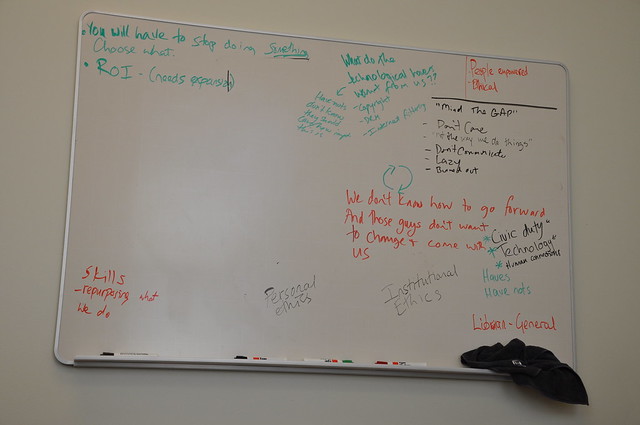 • You will have to stop doing something
Choose what.
• ROI - (needs expansion)
What do the
technological haves
want from us??
- Copyright
- DRM
- Internet Filtering
Have nots
don't know
they should
have
this is
People empowered
- Ethical
"Mind The GAP"
- Don't Care
- "it's the way we do things"
- Don't Communicate
- Lazy
- Burned out
We don't know how to go forward
And those guys don't want
to change + come with
US
* Civic duty"
* Technology"
* Human connections
Haves
Have nots
Librarian - General
Skills
- repurposing what
we do
Personal
ethics
Institutional
Ethics